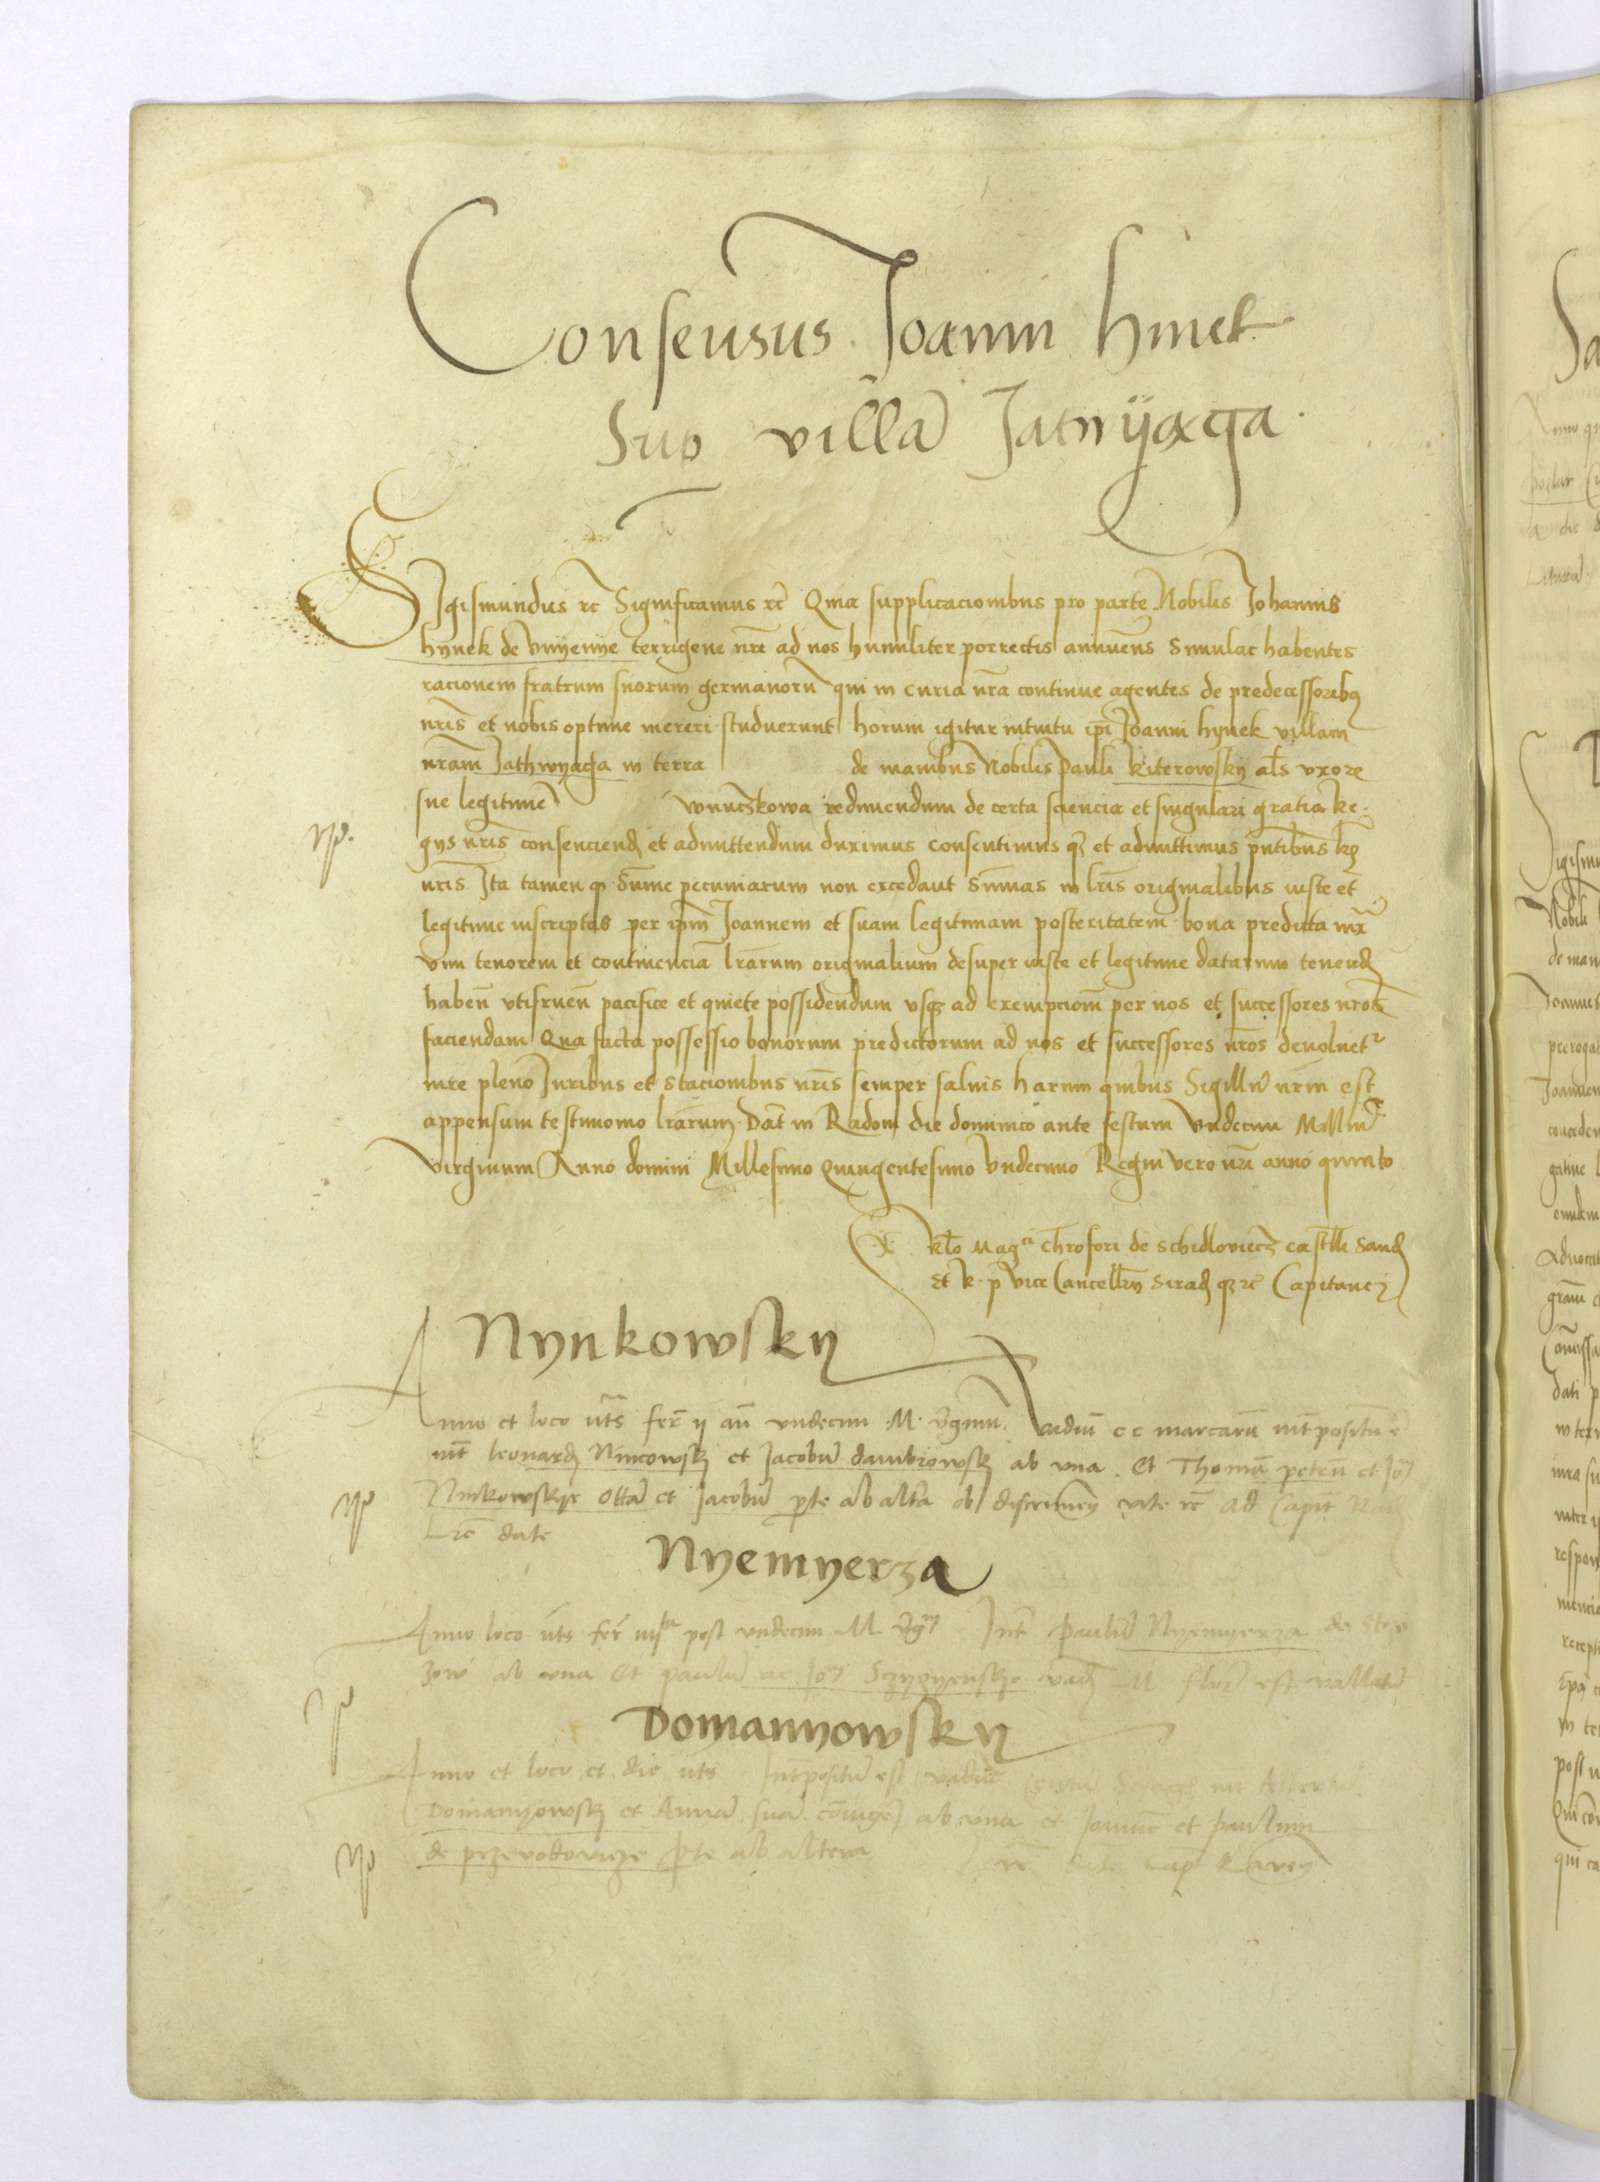 Consensus Joanni hinek
Sup villa Jatwyaga
Sigismundus rc Significamus rc Quia supplicacionibus pro parte Nobilis Johannis
hynek de vnyenye terrigene nre ad nos humiliter porrectis annuens Simulac habentes
racionem fratrum suorum germanoru qui in curia nra continue agentes de predecessoribq
nris et nobis optime mereri studuerunt horum igitur intuitu ipi Joanni hynek villam
nram Jathwyaga in terra de manibus Nobilis Pauli kiterowsky als vxore
sue legitime wnuczkowa redimendum de certa sciencia et singulari gratia Re-
gys nris consenciend et admittendum duximus consentimus qz et admittimus pntibus
nris Ita tamen q Sume pecuniarum non excedant Sumas in lris originalibus iuste et
legitime inscriptas per ipm Joannem et suam legitimam posteritatem bona predicta iux
vim tenorem et continencia lrarum originalium desuper iuste et legitime datarum tenend
haben vtifruen pacifice et quiete possidendum vsqz ad exempciom per nos et successores nros
faciendam Qua facta possessio bonorum predictorum ad nos et successores nros deuoluet
iure pleno Iuribus et stacionibus nris semper saluis harum quibus Sigillu nrm est
appensum testimonio lrarum Dat in Radom die dominico ante festum Vndecim Milliu
virginum Anno domini Millesimo Quingentesimo Vndecimo Regni vero nri anno quinto
Rlo Magci Chrofori de Schidloviecz castlli Sand
et R p vice Cancellry Sirad qz rc Capitanei
Nynkowsky
Anno et loco uts fer ij an vndecim M vginu Vadiu cc marcaru intpositu e
int leonard Nincowsk et Jacobu dambrowsk ab vna Et Thoma petru et Jo
Ninkowskye Otta et Jacobu pte ab alta ob discrimen vite rc ad Capit Rad
Lre date
Nyemyerza
Anno loco uts fer post vndecim M vg Int paulu Nyemyerza de
ab vna Et paulu ac Jo vad M flor est vallatu
Domannowsky
Anno et loco et die uts Intpositu est vadiu
Domanyowsk et Anna sua coniuge ab vna et Joanne et paulum
de przewodowicze pte ab altera Lre date Cap Raven